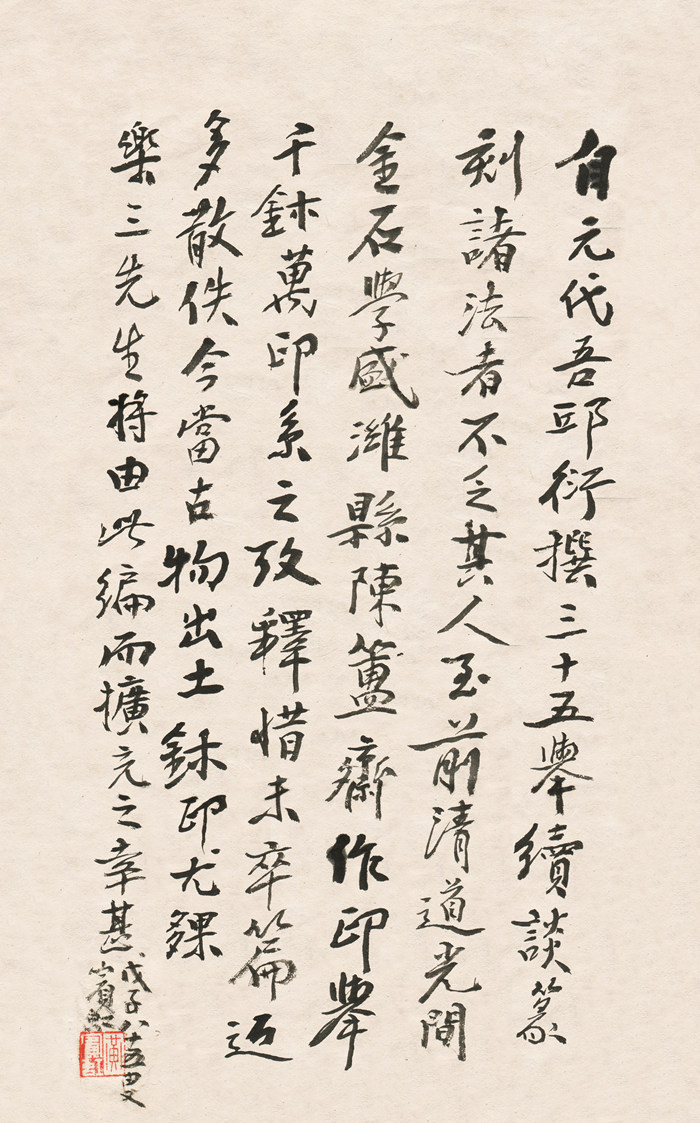 自元代吾邱衍撰三十五舉續談篆
刻諸法者不乏其人至前清道光間
金石學盛濰縣陳簠齋作印舉
千鉥萬印系之攷釋惜未卒篇近
多散佚今當古物出土鉥印尤夥
樂三先生將由此編而擴充之幸甚
戊子八十五叟
賓虹
黃賓虹